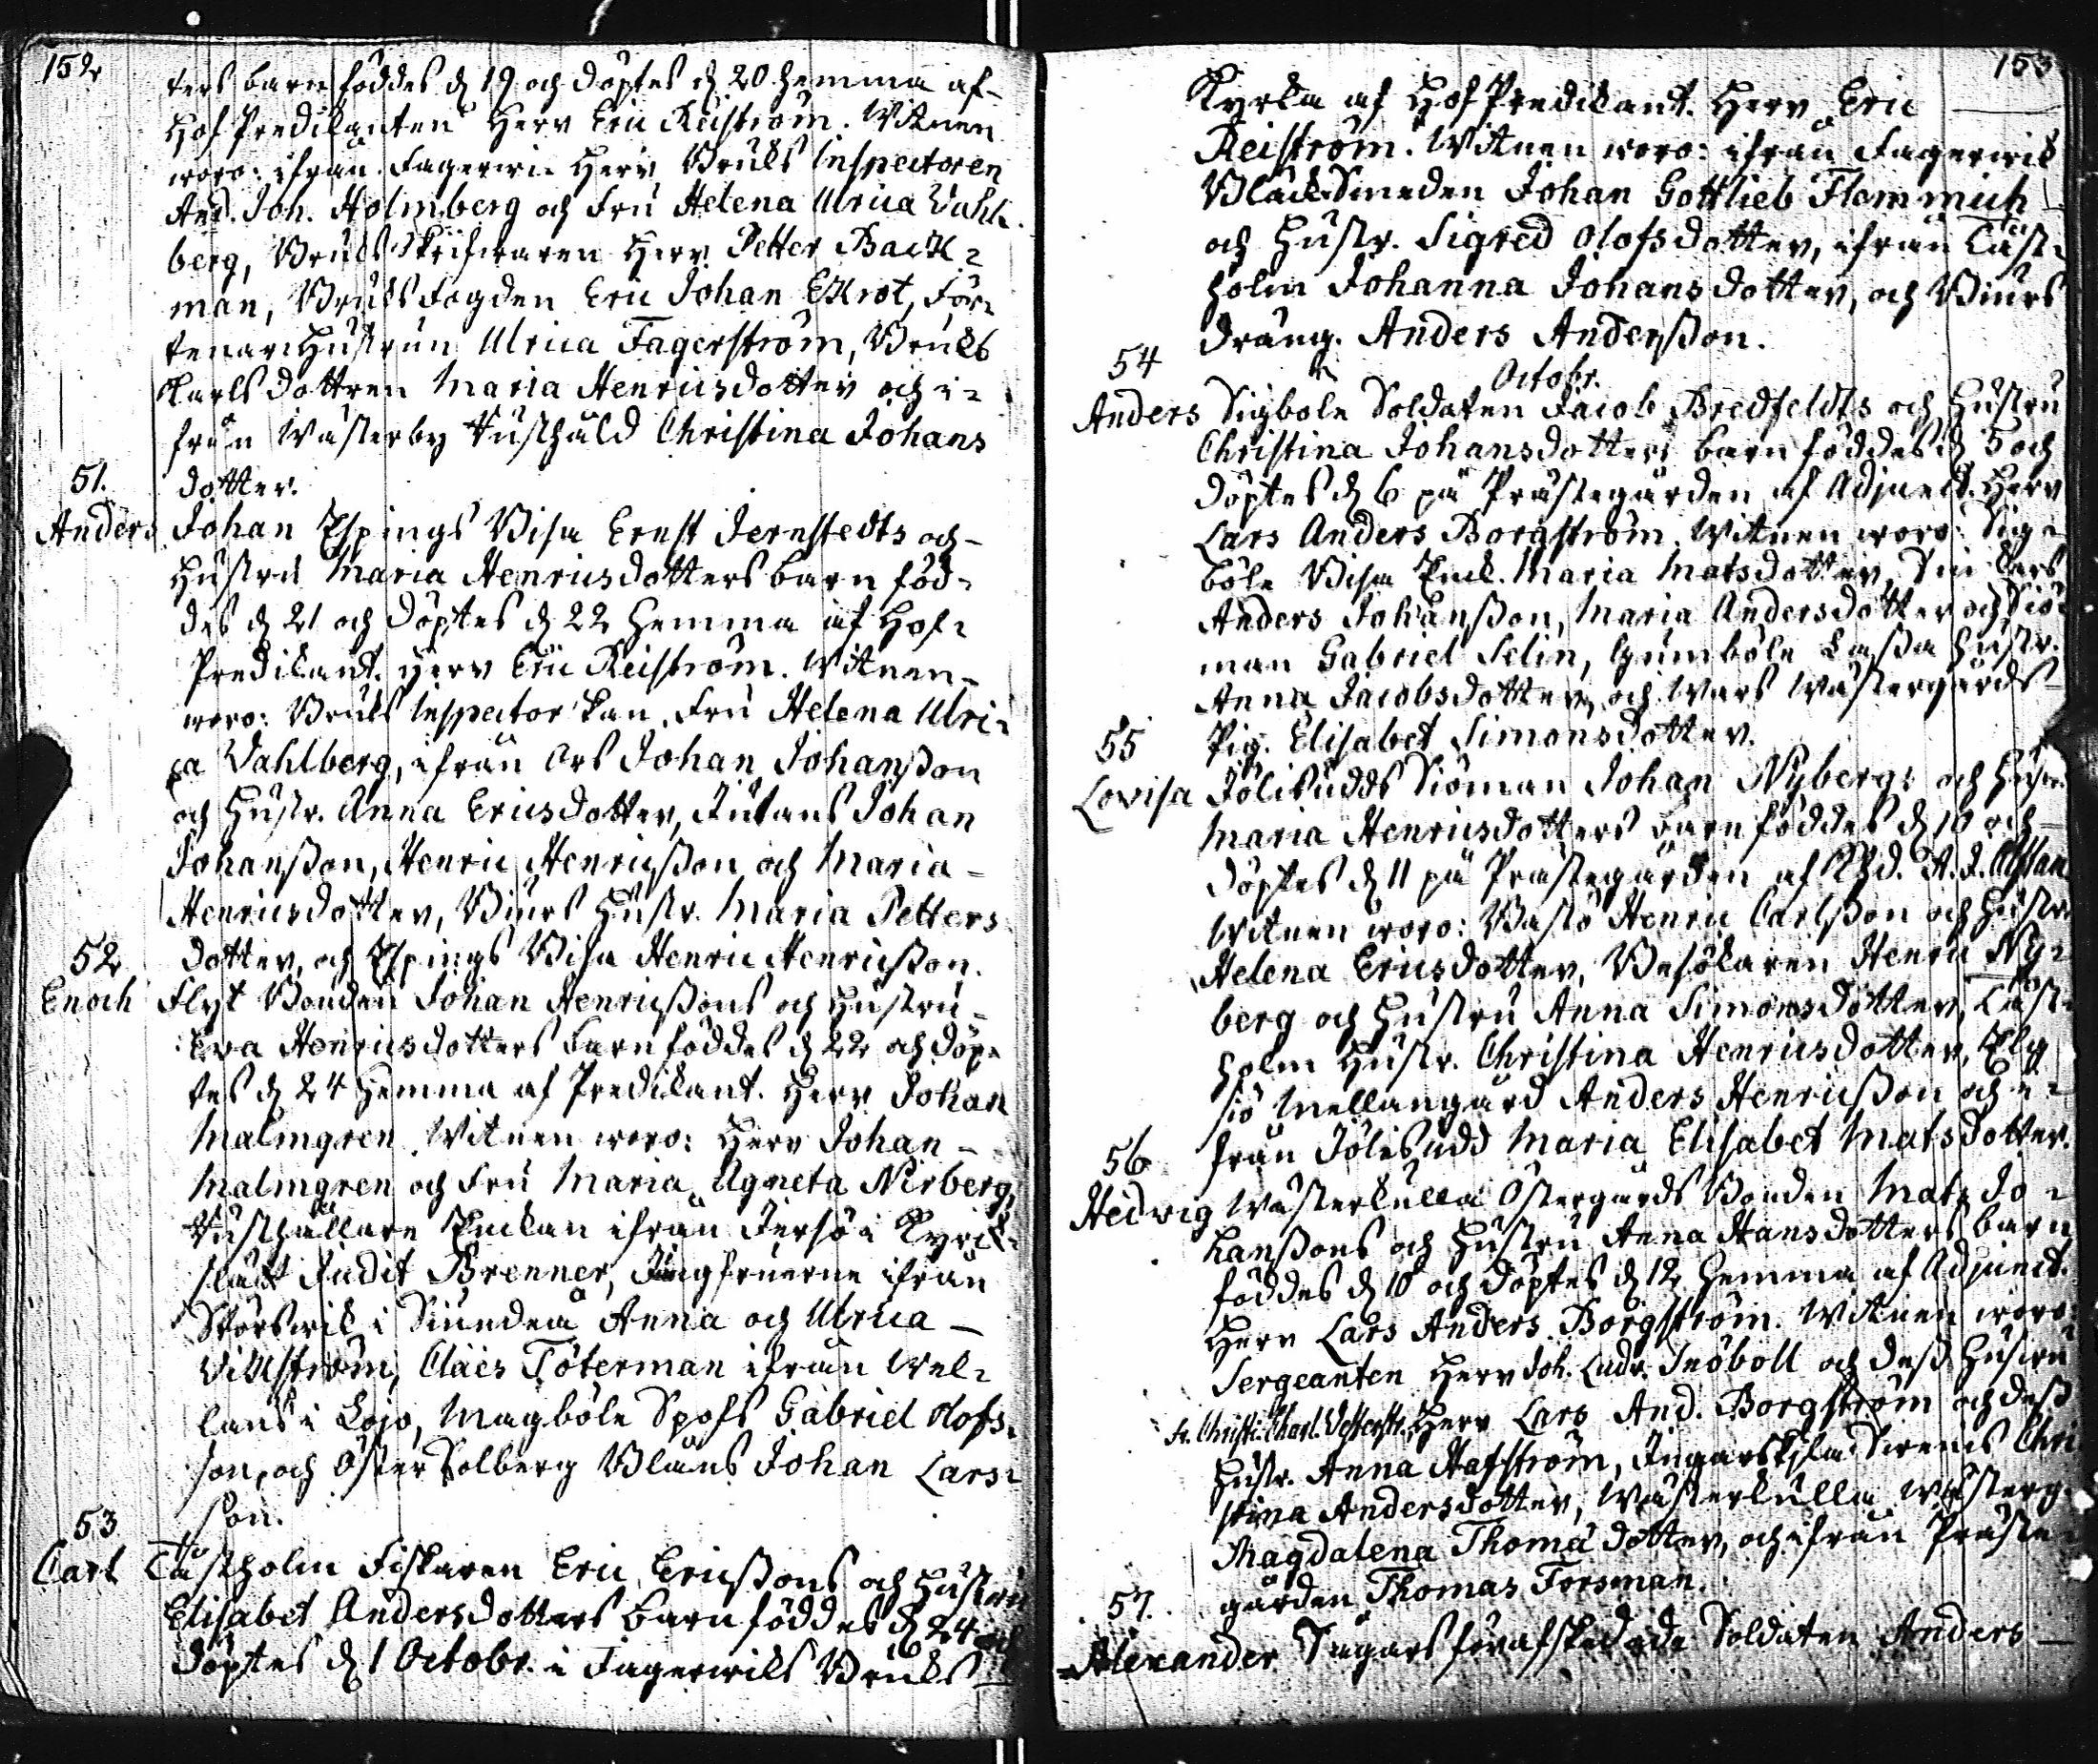 152
ters barn föddes d 19 och döptes d 20 hemma af
Hof Predikanten Herr Eric Reiström. Witnen
woro: ifrån Fagerwic Herr Bruks Inspectoren
And. Joh. Holmberg och Fru Helena Ulrica Vahl-
berg, Bruks Skrifwaren Herr Petter Back=
man, Bruksfogden Eric Johan Ekrot, För=
tenare Hustrun Ulrica Fagerström, Bruks
Karls dottren Maria Henricsdotter och i=
från Wästerby Husthåld Christina Johans
dotter.
51.
Anders Johan Espings Wisa Ernst Jernstedts och
Hustru Maria Henricsdotters barn föd=
des d 21 och döptes d 22 hemma af Hof=
Predikant. Herr Eric Reiström. Witnen
woro: Bruks Inspectorskan, Fru Helena Ulri=
ca Vahlberg, ifrån Ors Johan Johanßon
och Hustr. Anna Ericsdotter, Rutans Johan
Johanßon, Henric Henricßon och Maria
Henricsdotter, Biurs Hustr. Maria Petters
dotter, och Espings Wisa Henric Henricßon.
52
Enoch Flyt Bonden Johan Henricßons och Hustru
Eva Henricsdotters barn föddes d 22 och döp=
tes d 24 hemma af Predikant. Herr Johan
Malmgren. Witnen woro: Herr Johan
Malmgren och Fru Maria Agneta Nirberg,
Husthållare Enckan ifrån Jersö i Kyrk=
slätt Judit Brenner, Jungfruerne ifrån
Störswik i Siundeå Anna och Ulrica
Villström, Claes Töterman ifrån Wel=
lans i Lojo, Magböle Spofs Gabriel Olofs=
son, och Öster Solberg Blåus Johan Lars=
son.
53
Carl Täktholm Fiskaren Eric Ericßons och Hustru
Elisabet Andersdotters barn föddes d 24 och
döptes d 1 Octobr. i Fagerwiks Bruks
153
Kyrka af Hof Predikant. Herr Eric
Reiström. Witnen woro: ifrån Fagerwik
BläckSmeden Johan Gottlieb Flemmich
och Hustr. Sigred Olofsdotter, ifrån Täkt=
holm Johanna Johansdotter, och Biurs
dräng. Anders Anderßon.
Octobr.
54
Anders Sigböle Soldaten Jacob Bredfeldts och Hustru
Christina Johansdotters barn föddes d 5 och
döptes d 6 på Prästegården af Adjunct. Herr
Lars Anders Borgström. Witnen woro: Sig=
böle Wisa Enck. Maria Matsdotter,
Anders Johanßon, Maria Andersdotter och Siö=
man Gabriel Selin, Gumböle Laßa Hustr.
Anna Jacobsdotter, och Wars Wästergårds
Pig. Elisabet Simonsdotter.
55
Lovisa Jölisudds Siöman Johan Nybergs och Hustr.
Maria Henricsdotters barn föddes d 10 och
döptes d 11 på Prästegården af A. J. Alftan
Witnen woro: Bastö Henric Carlßon och Hustru
Helena Ericsdotter, Besökaren Henric Ny=
berg och Hustru Anna Simonsdotter, Täkt=
holm Hustr. Christina Henricsdotter, Elg
siö Mellangård Anders Henricßon och i=
från Jölisudd Maria Elisabet Matsdotter.
56
Hedwig Wästerkulla Östergårds Bonden Mats Jo=
hanßons och Hustru Anna Hansdotters barn
föddes d 10 och döptes d 12 hemma af Adjunct.
Herr Lars Anders Borgström. Witnen woro:
Sergeanten Herr Joh. Ludv. Snöboll och deß Hustru
Herr Lars And. Borgström och deß
Hustr. Anna Hafström, Ingarskila Svens Chri
stina Andersdotter, Wästerkulla Wästerg.
Magdalena Thoma dotter, och ifrån Präste=
gården Thomas Forsman.
57.
Alexander Ingars förafskedade Soldaten Anders